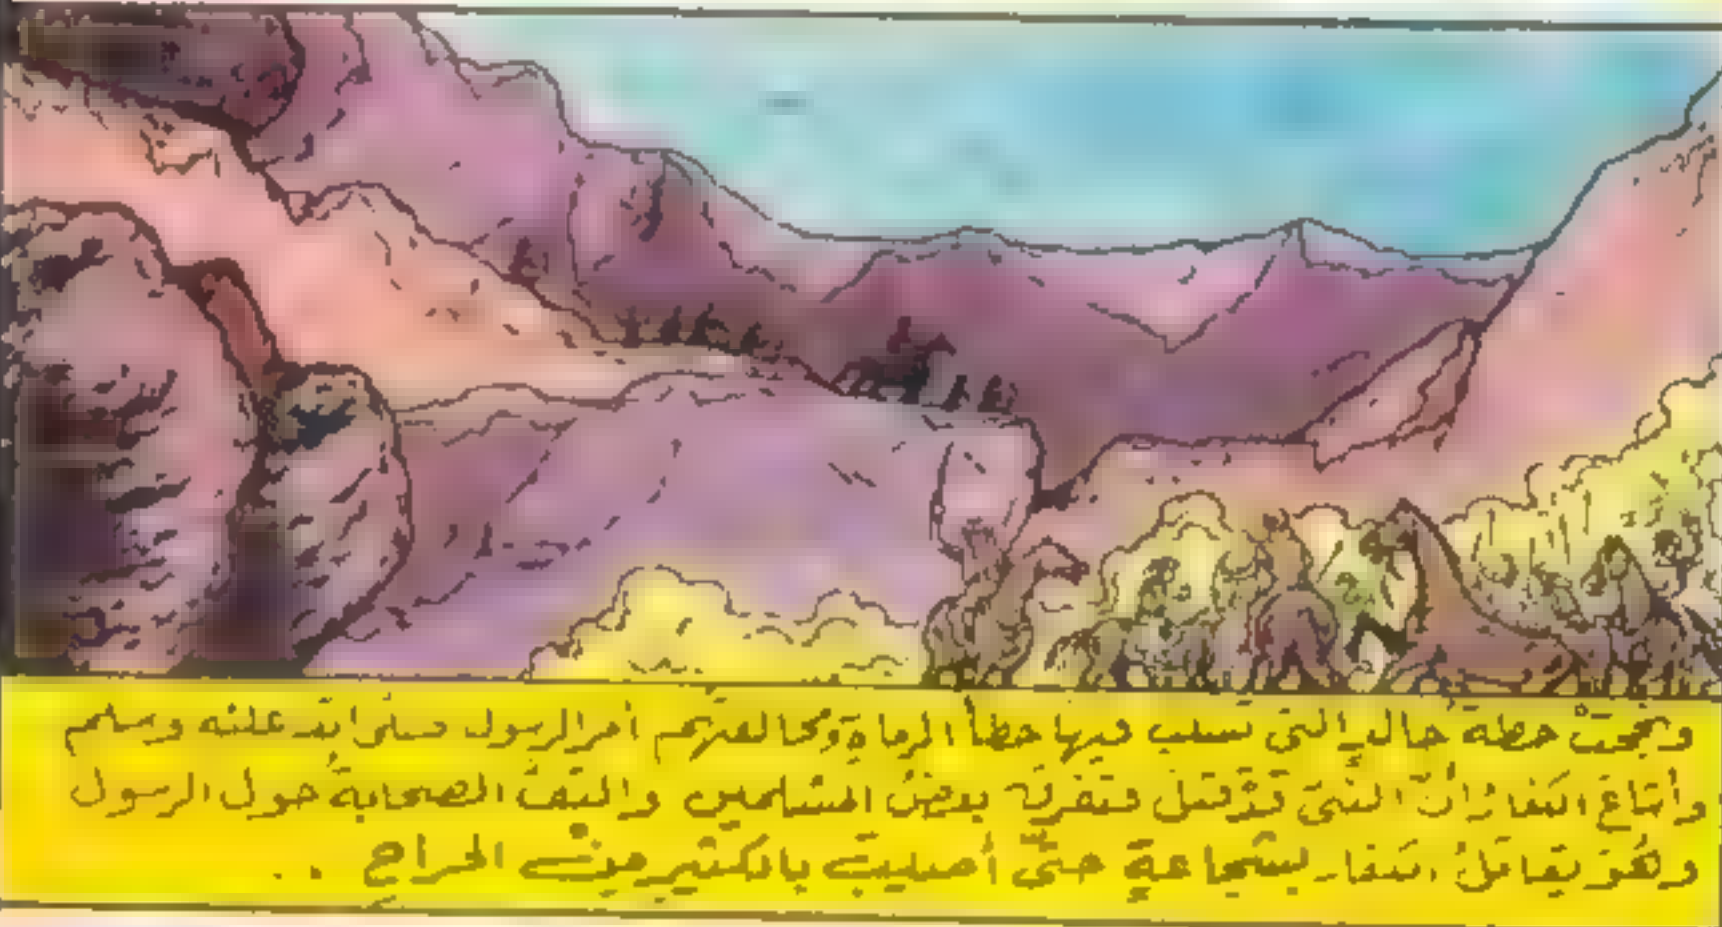 ونجحت خطة خالد التي تسبب فيها خطأ الرماة ومخالفتهم أمر الرسول صلى الله عليه وسلم
وأشاع الكفار أن النبي قد قتل فتفرق بعض المسلمين والتف الصحابة حول الرسول
وهو يقاتل الكفار بشجاعة حتى أصيب بالكثير من الجراح ..